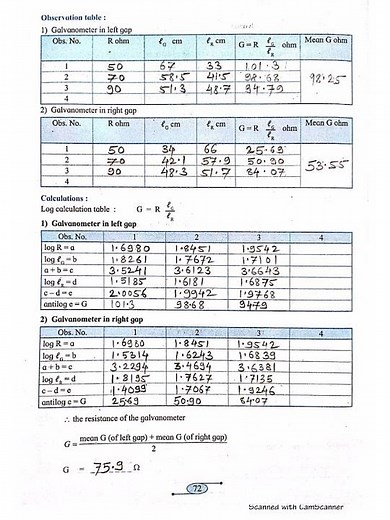 Observation table :
1) Galvanometer in left gap
Obs. No. R ohm ℓG cm ℓR cm G = R ℓG/ℓR ohm Mean G ohm
1 50 67 33 101.3
2 70 58.5 41.5 98.68 98.25
3 90 51.3 48.7 94.79
4
2) Galvanometer in right gap
Obs. No. R ohm ℓG cm ℓR cm G = R ℓG/ℓR ohm Mean G ohm
1 50 34 66 25.69
2 70 42.1 57.9 50.90 53.55
3 90 48.3 51.7 84.07
4
Calculations :
Log calculation table : G = R ℓG/ℓR
1) Galvanometer in left gap
Obs. No. 1 2 3 4
log R = a 1.6980 1.8451 1.9542
log ℓG = b 1.8261 1.7672 1.7101
a + b = c 3.5241 3.6123 3.6643
log ℓR = d 1.5185 1.6181 1.6875
c – d = e 2.0056 1.9942 1.9768
antilog e = G 101.3 98.68 9479
2) Galvanometer in right gap
Obs. No. 1 2 3 4
log R = a 1.6980 1.8451 1.9542
log ℓG = b 1.5314 1.6243 1.6839
a + b = c 3.2294 3.4694 3.6381
log ℓR = d 1.8195 1.7627 1.7135
c – d = e 1.4099 1.7067 1.9246
antilog e = G 25.69 50.90 84.07
∴ the resistance of the galvanometer
G = mean G (of left gap) + mean G (of right gap) / 2
G = 75.9 Ω
72
Scanned with CamScanner